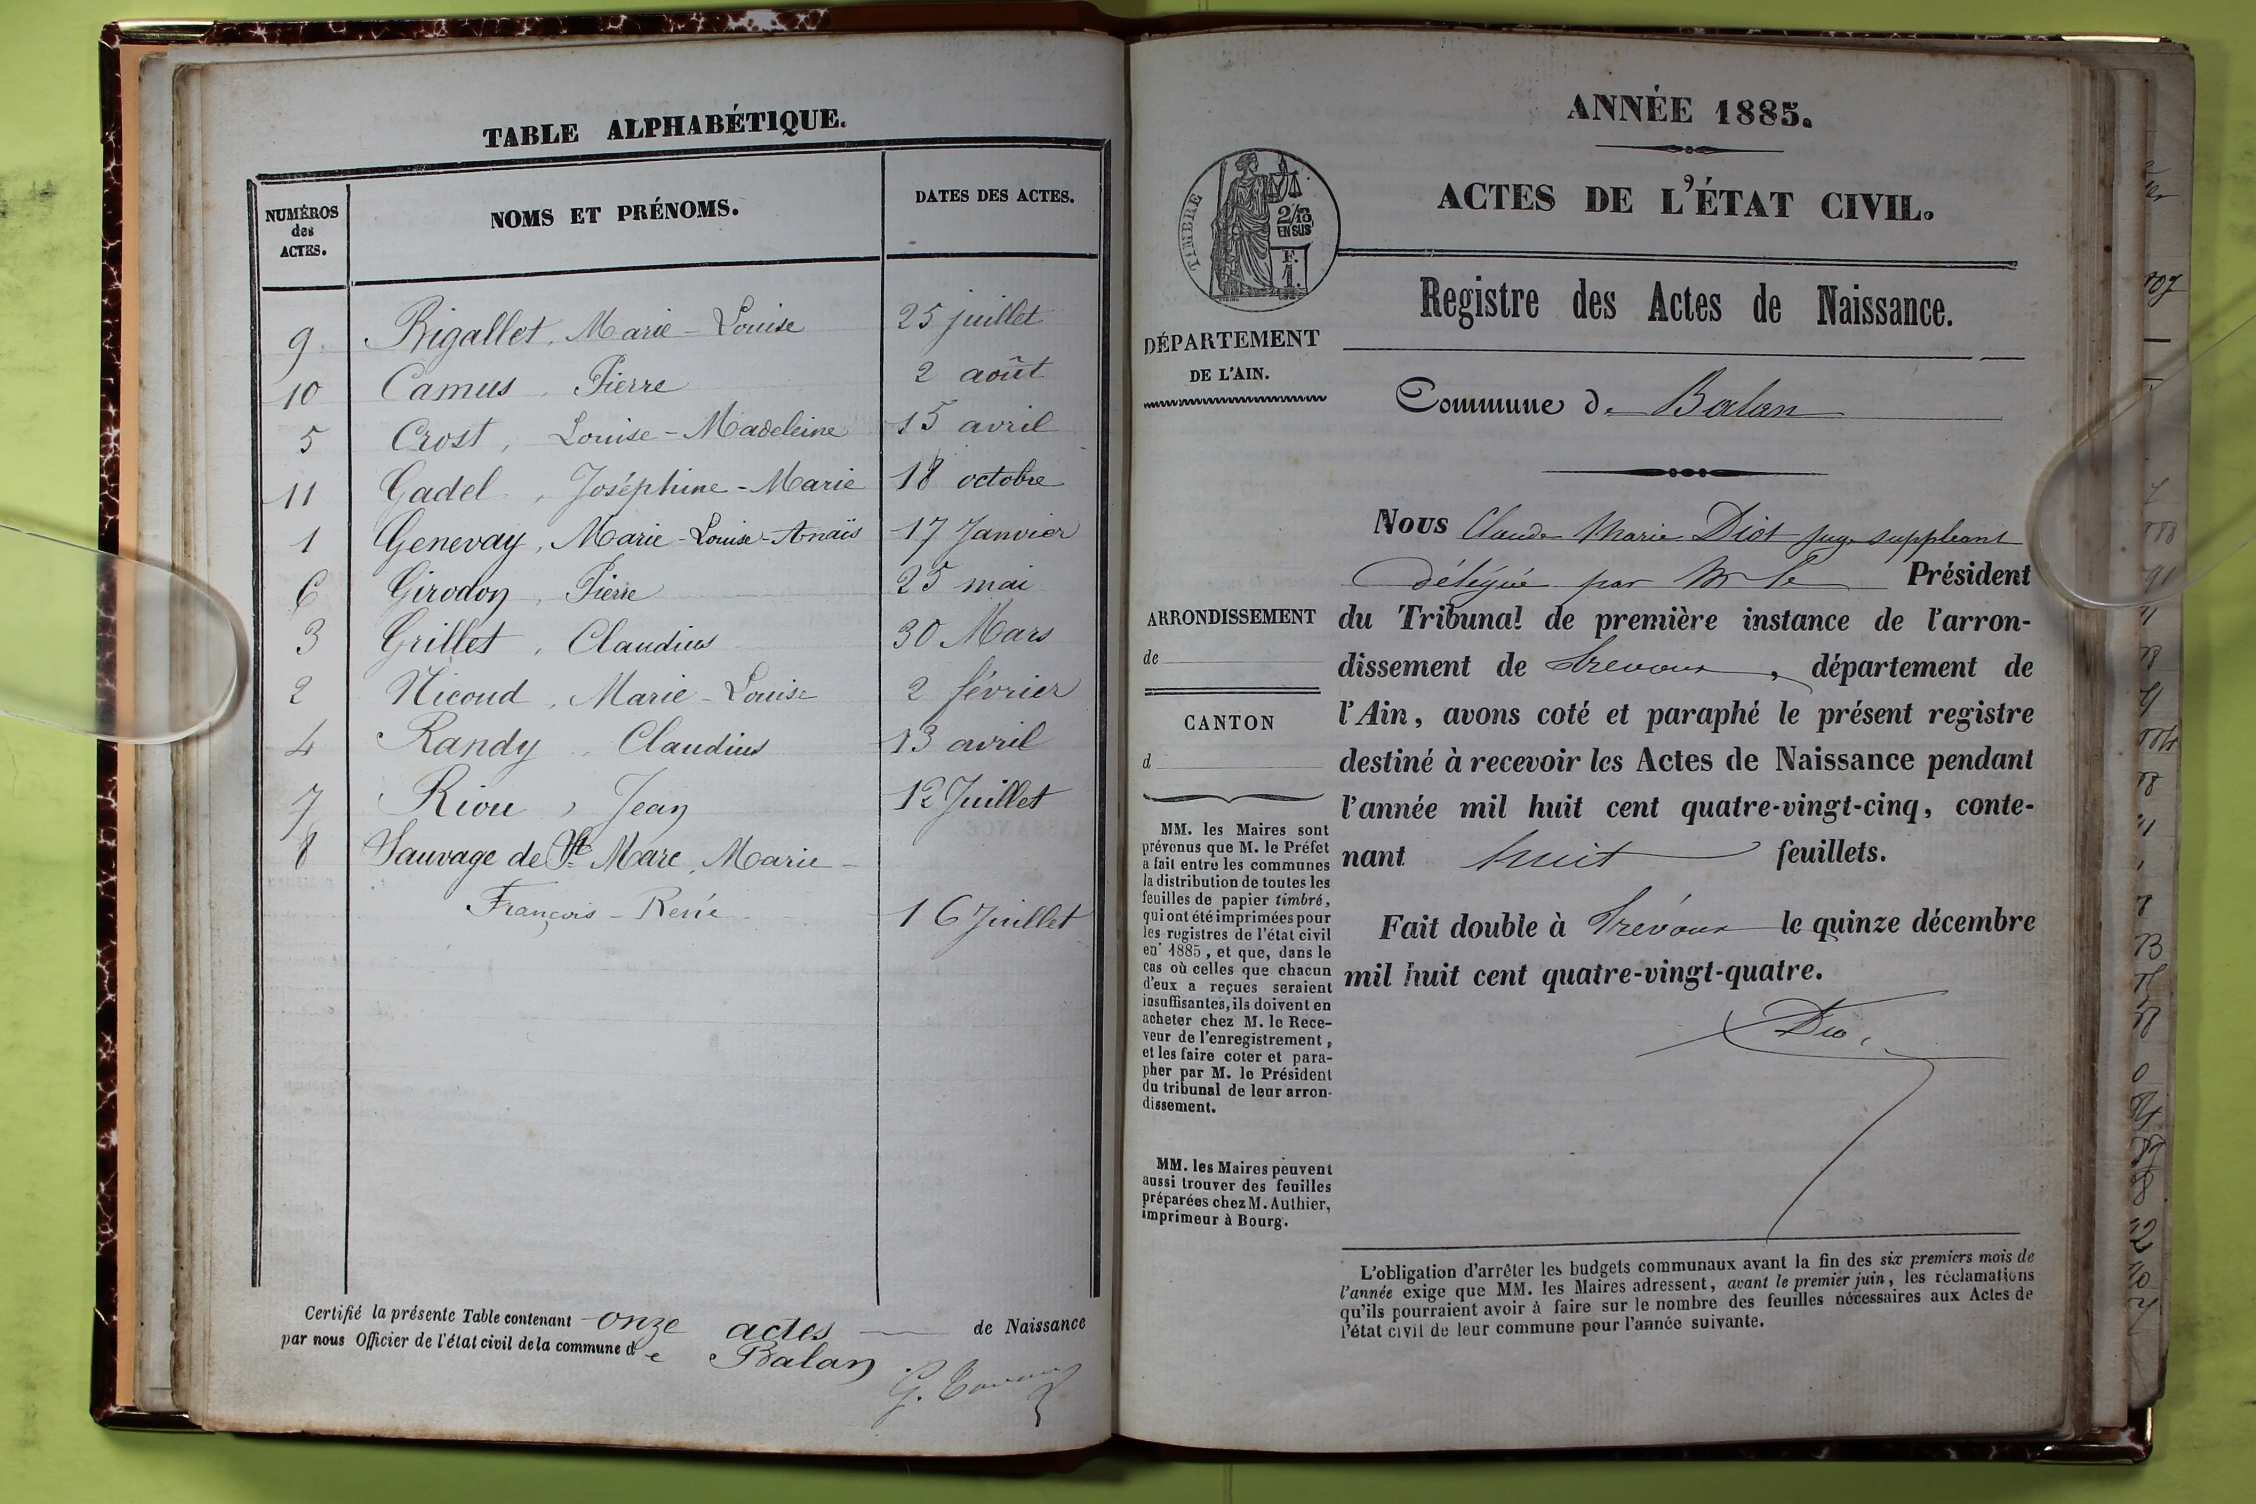 TABLE ALPHABÉTIQUE.
NUMÉROS des ACTES.
NOMS ET PRÉNOMS.
DATES DES ACTES.
9 Bigallet, Marie-Louise 25 juillet
10 Camus, Pierre 2 août
5 Crost, Louise-Madeleine 15 avril
11 Gadel, Joséphine-Marie 18 octobre
1 Genevay, Marie-Louise-Anaïs 17 Janvier
6 Girodon, Pierre 25 mai
3 Grillet, Claudius 30 Mars
2 Nicoud, Marie-Louise 2 février
4 Randy, Claudius 13 avril
7 Riou, Jean 12 Juillet
8 Sauvage de St Marc, Marie-
François-René 16 Juillet
Certifié la présente Table contenant onze actes de Naissance
par nous Officier de l'état civil de la commune de Balan
ANNÉE 1885.
ACTES DE L'ÉTAT CIVIL.
TIMBRE
2/10
EN SUS
F.
1.
Registre des Actes de Naissance.
DÉPARTEMENT
DE L'AIN.
Commune de Balan
Nous Claude Marie Diot juge suppléant
délégué par Mr le Président
ARRONDISSEMENT
de
du Tribunal de première instance de l'arron-
dissement de Trevoux, département de
l'Ain, avons coté et paraphé le présent registre
CANTON
d
destiné à recevoir les Actes de Naissance pendant
l'année mil huit cent quatre-vingt-cinq, conte-
nant huit feuillets.
Fait double à Trévoux le quinze décembre
mil huit cent quatre-vingt-quatre.
MM. les Maires sont
prévenus que M. le Préfet
a fait entre les communes
la distribution de toutes les
feuilles de papier timbré,
qui ont été imprimées pour
les registres de l'état civil
en 1885, et que, dans le
cas où celles que chacun
d'eux a reçues seraient
insuffisantes, ils doivent en
acheter chez M. le Rece-
veur de l'enregistrement,
et les faire coter et para-
pher par M. le Président
du tribunal de leur arron-
dissement.
MM. les Maires peuvent
aussi trouver des feuilles
préparées chez M. Authier,
imprimeur à Bourg.
L'obligation d'arrêter les budgets communaux avant la fin des six premiers mois de
l'année exige que MM. les Maires adressent, avant le premier juin, les réclamations
qu'ils pourraient avoir à faire sur le nombre des feuilles nécessaires aux Actes de
l'état civil de leur commune pour l'année suivante.